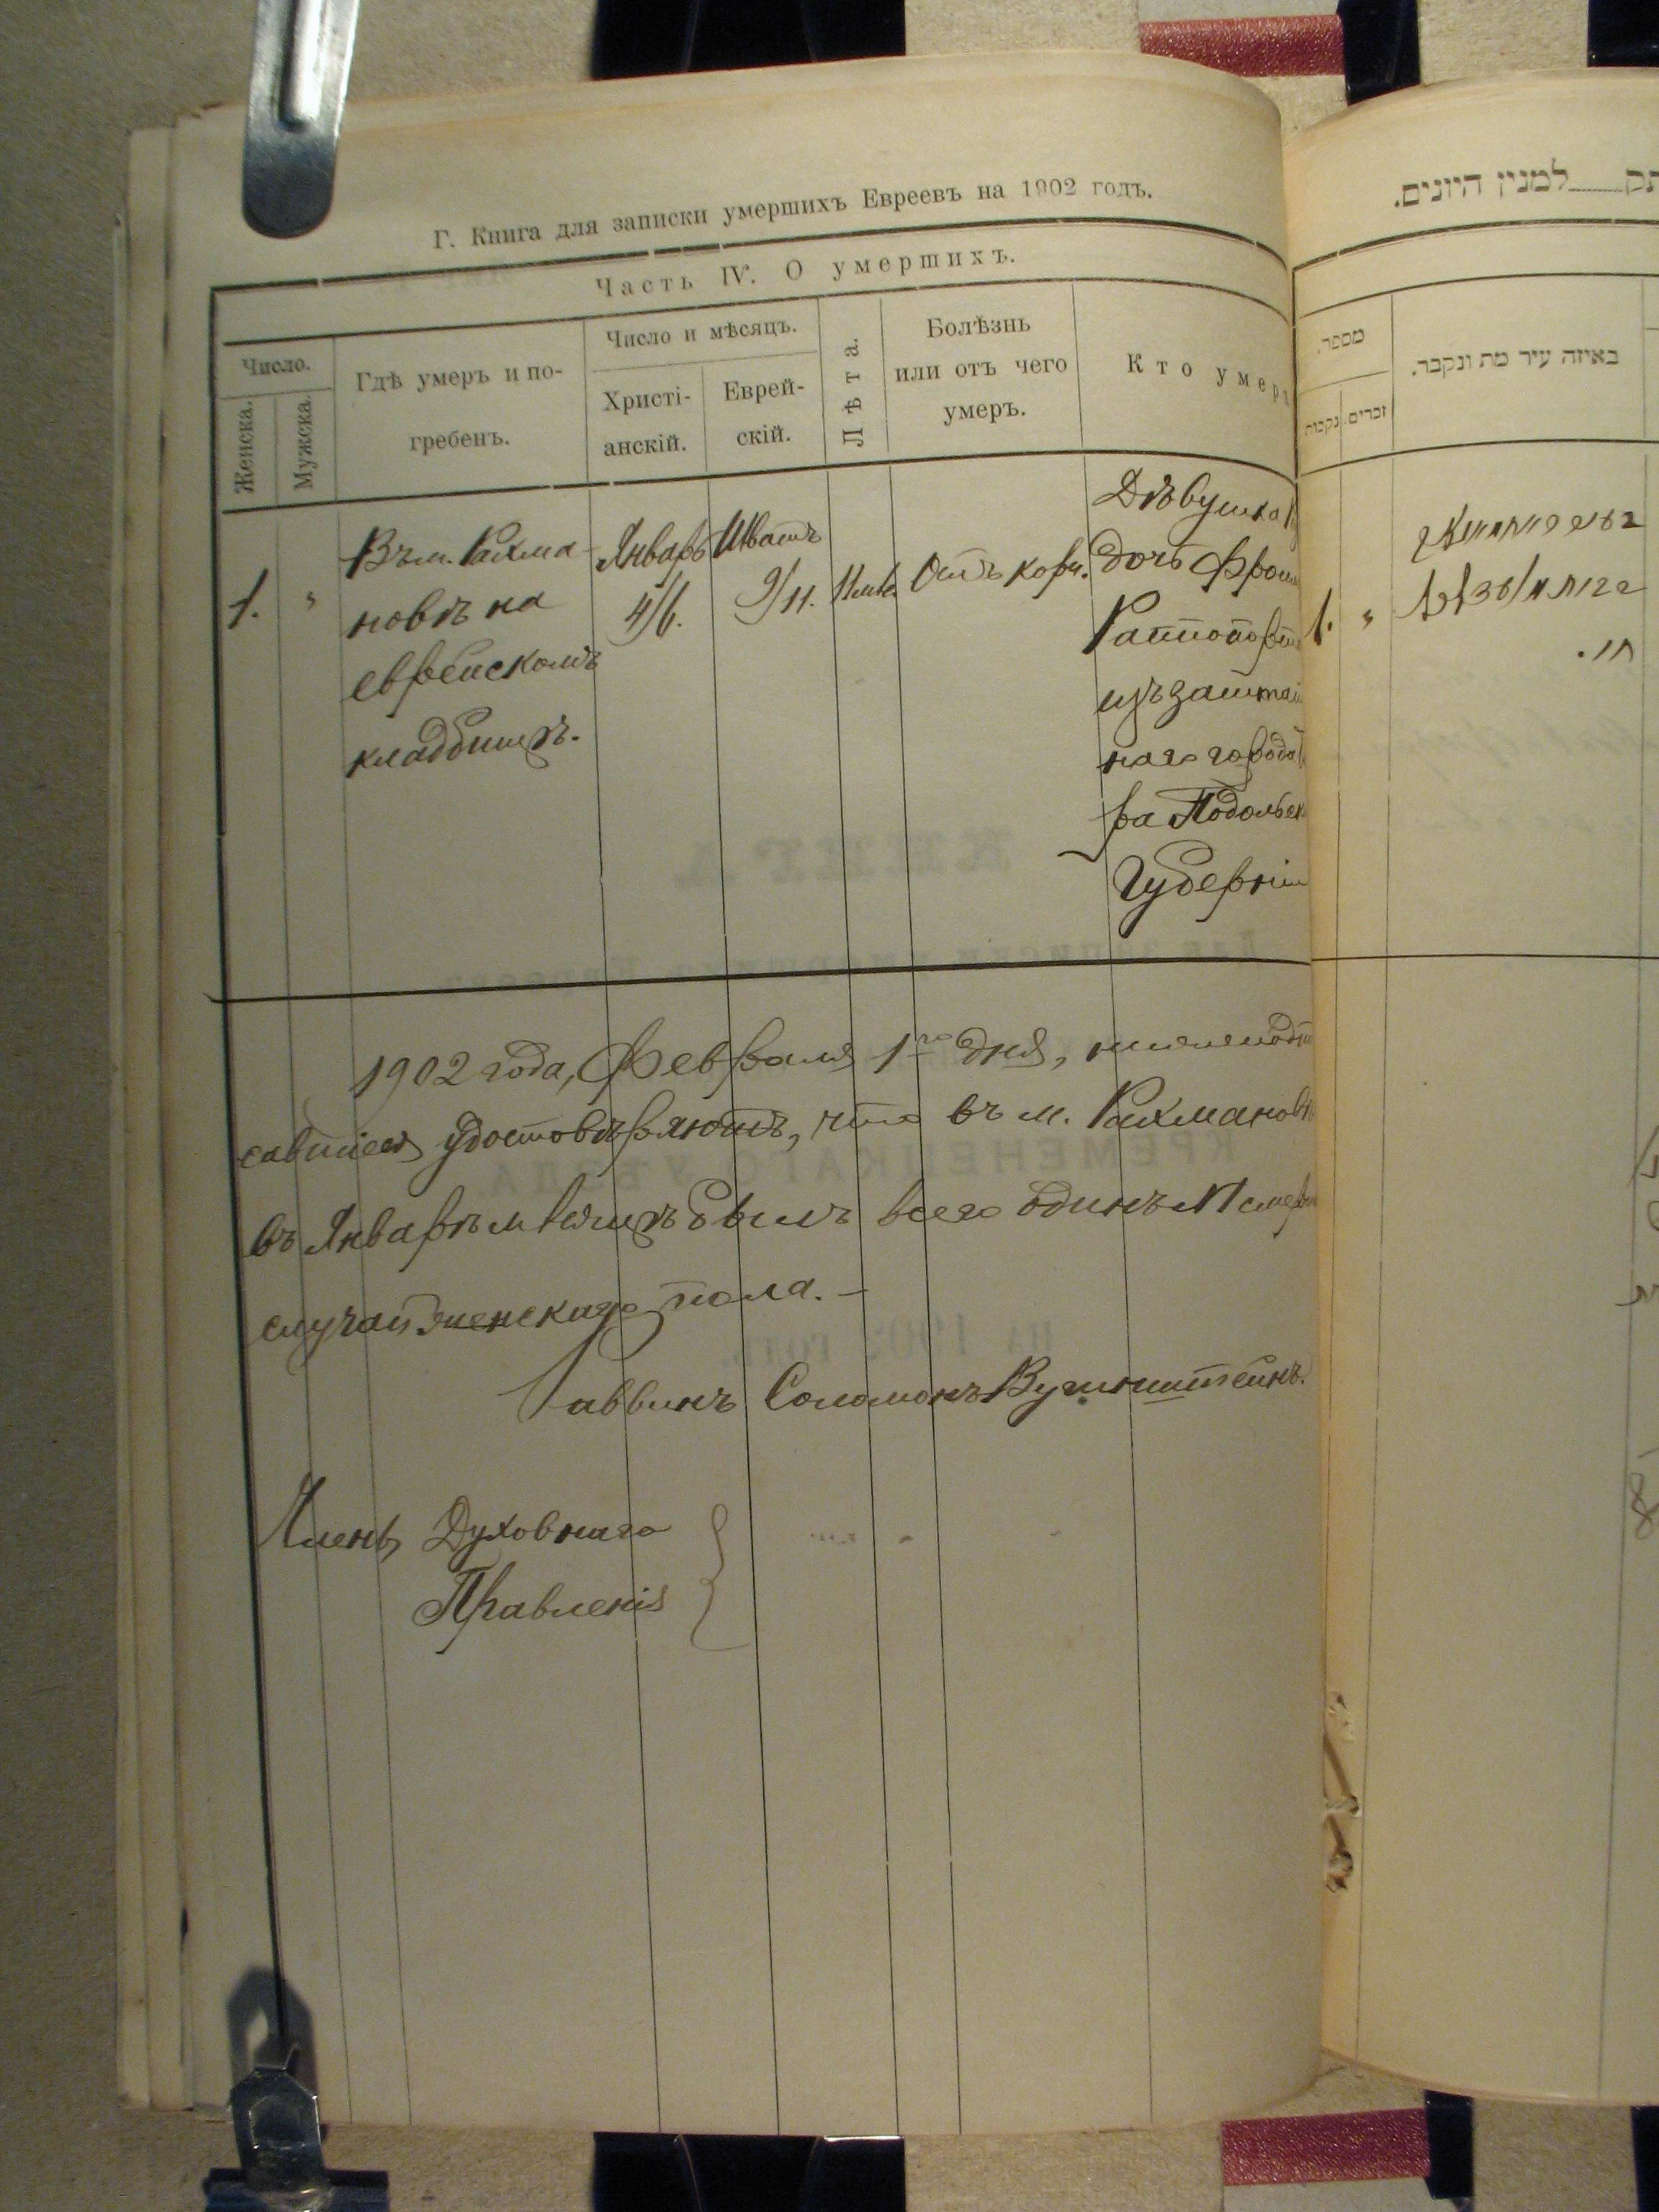 Г. Книга для записки умершихъ Евреевъ на 1902 годъ.
Часть IV. О умершихъ.
Число.
Женска.
Мужска.
Гдѣ умеръ и по-
гребенъ.
Число и мѣсяцъ.
Христі-
анскій.
Еврей-
скій.
Лѣта.
Болѣзнь
или отъ чего
умеръ.
Кто умер
1.
"
Въ м. Рахма-
новѣ на
еврейскомъ
кладбищѣ.
Январь
4/6.
Шватъ
9/11.
11 лѣт.
Отъ кори.
Дѣвушка
дочь
Раппопорт
изъ заштат
наго города
ра Подольск
Губерніи
1902 года, Февраля 1го дня, нижеподпи
савшіеся удостовѣряютъ, что въ м. Рахмановѣ
въ Январѣ мѣсяцѣ былъ всего одинъ
случай женскаго пола. –
Раввинъ Соломонъ
Члены Духовнаго
Правленія
תק למנין היונים.
מספר.
נקבות
זכרים.
באיזה עיר מת ונקבר.
1.
"